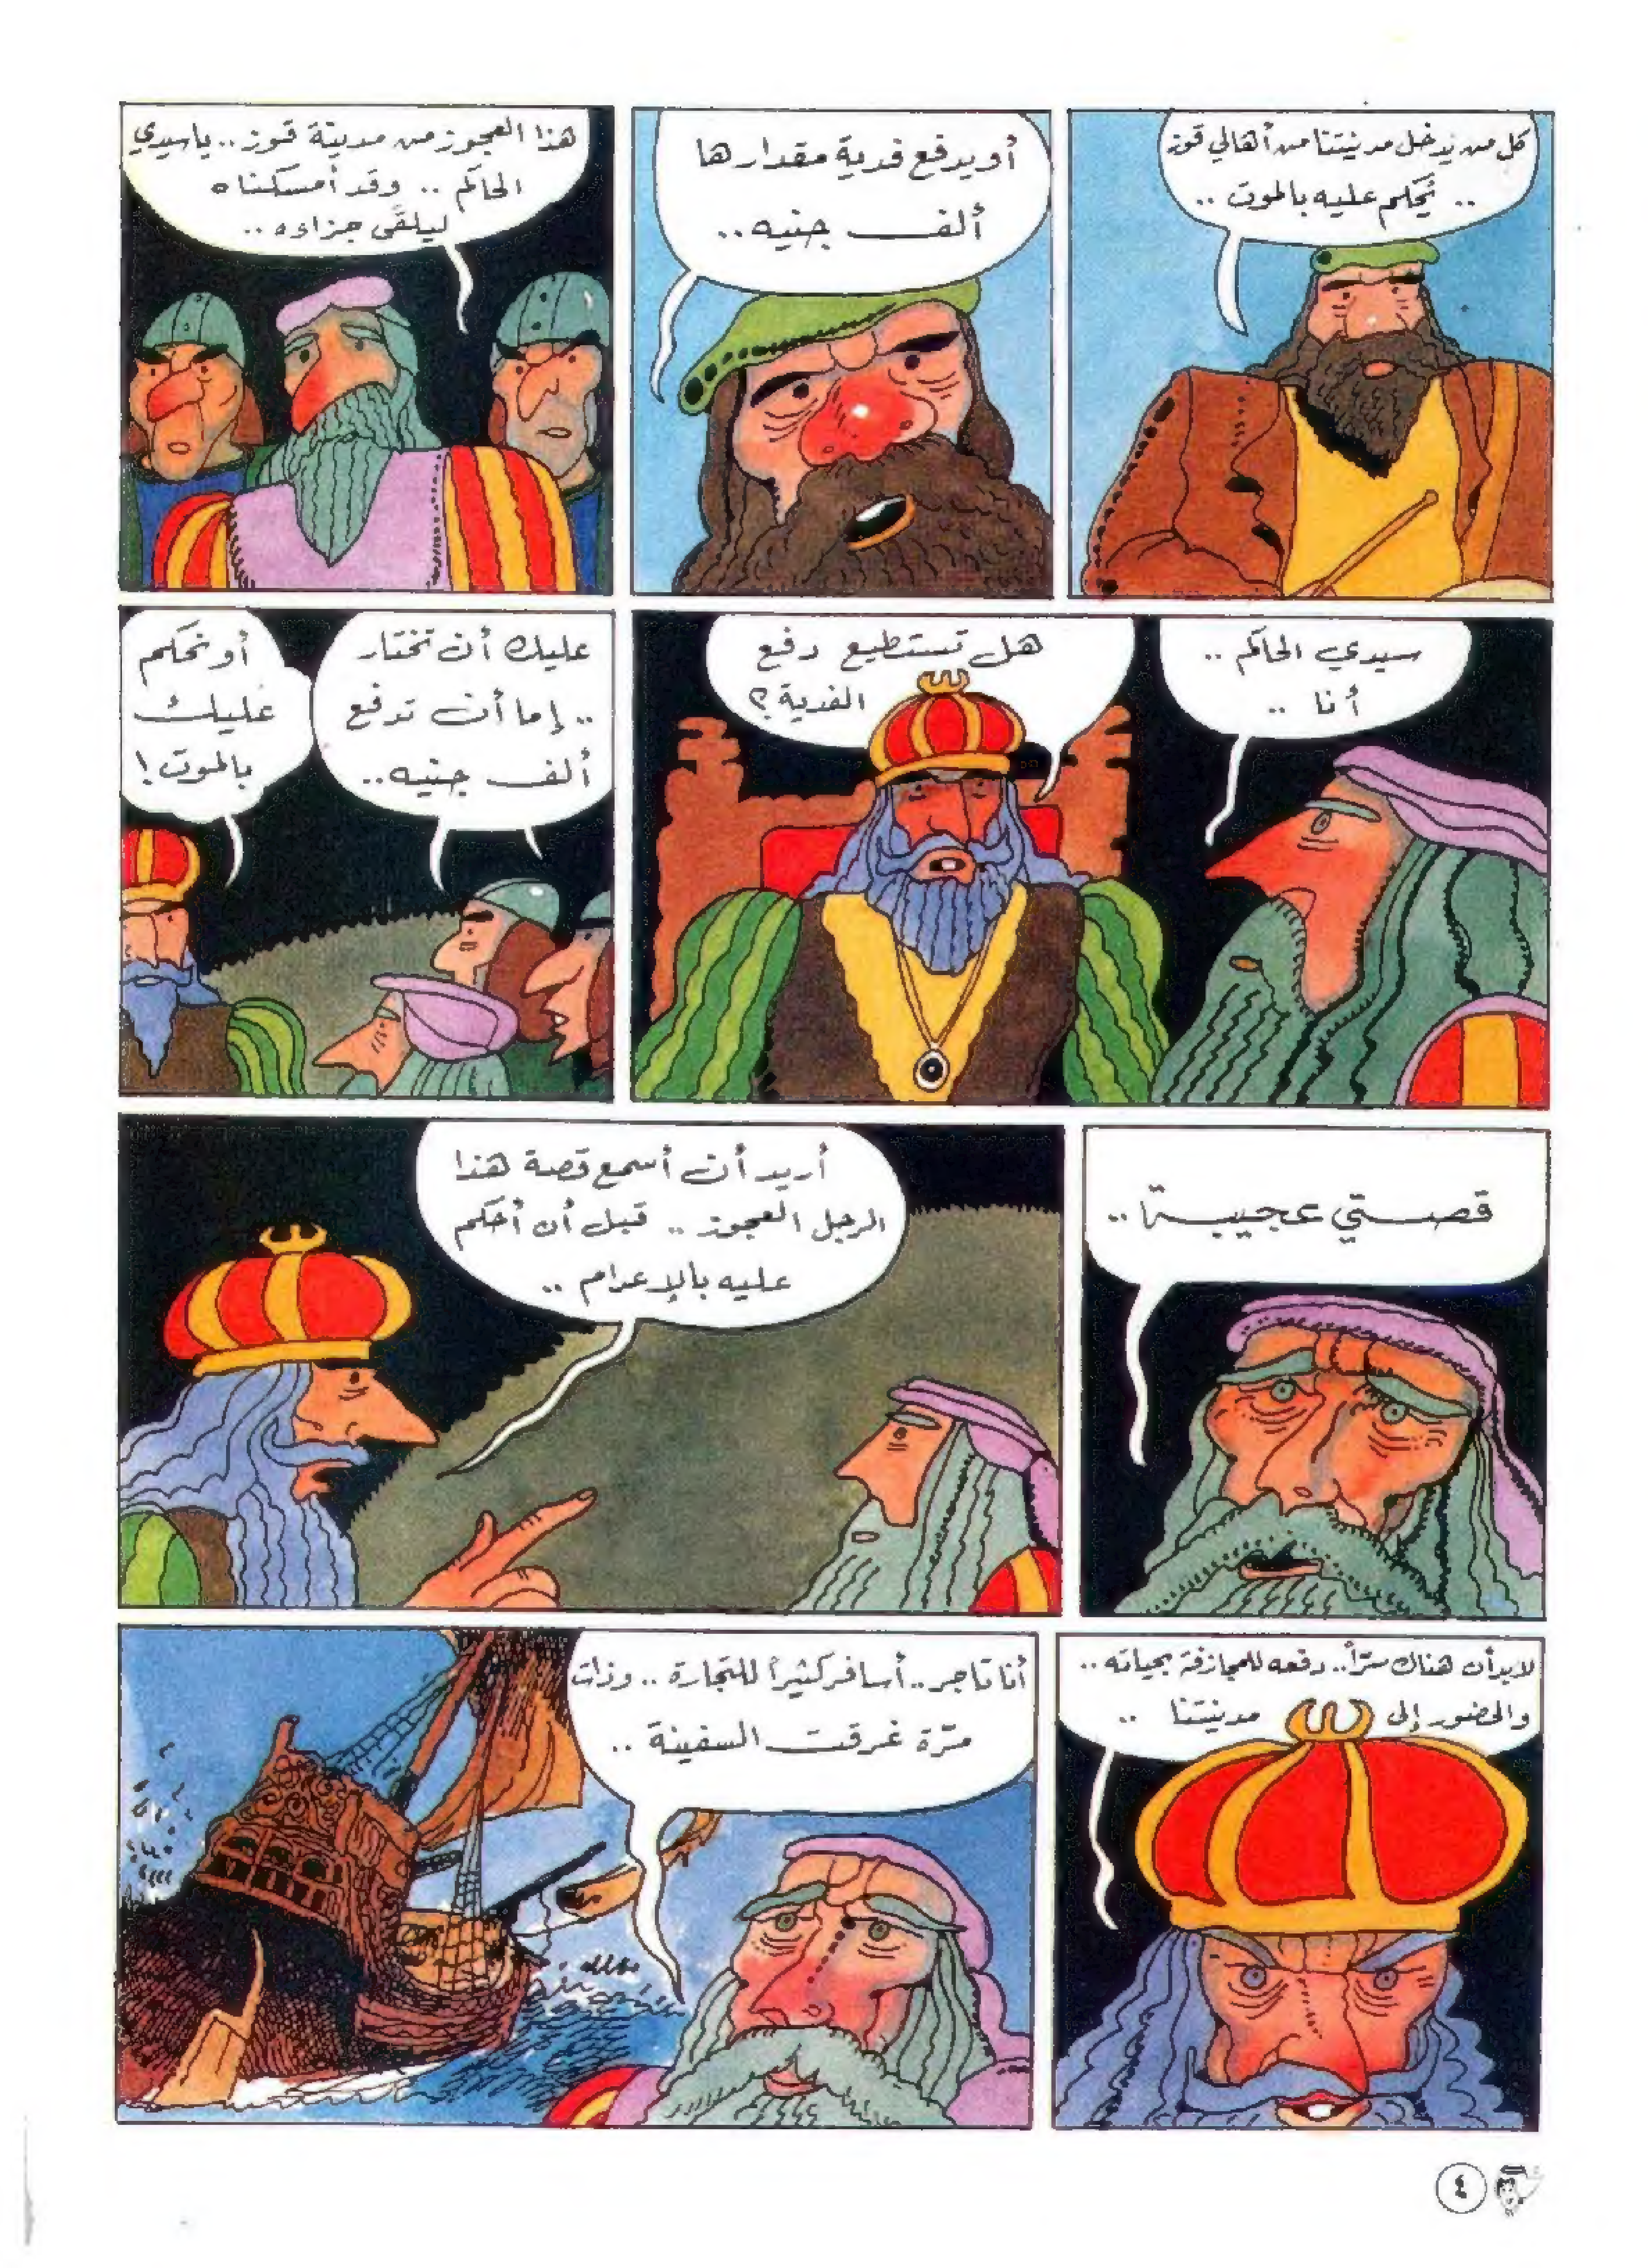 كل من يدخل مدينتنا من أهالي قوز
.. يُحكم عليه بالموت ..
أو يدفع فدية مقدارها
ألف جنيه ..
هذا العجوز من مدينة قوز .. ياسيدي
الحاكم .. وقد أمسكناه
ليلقى جزاءه ..
سيدي الحاكم ..
أنا ..
هل تستطيع دفع
الفدية ؟
عليك أن تختار
.. إما أن تدفع
ألف جنيه ..
أو نحكم
عليك
بالموت !
قصتي عجيبة ..
أريد أن أسمع قصة هذا
الرجل العجوز .. قبل أن أحكم
عليه بالإعدام ..
لابد أن هناك سرّاً .. دفعه للمجازفة بحياته ..
والحضور إلى مدينتنا ..
أنا تاجر .. أسافر كثيراً للتجارة .. وذات
مرّة غرقت السفينة ..
٤